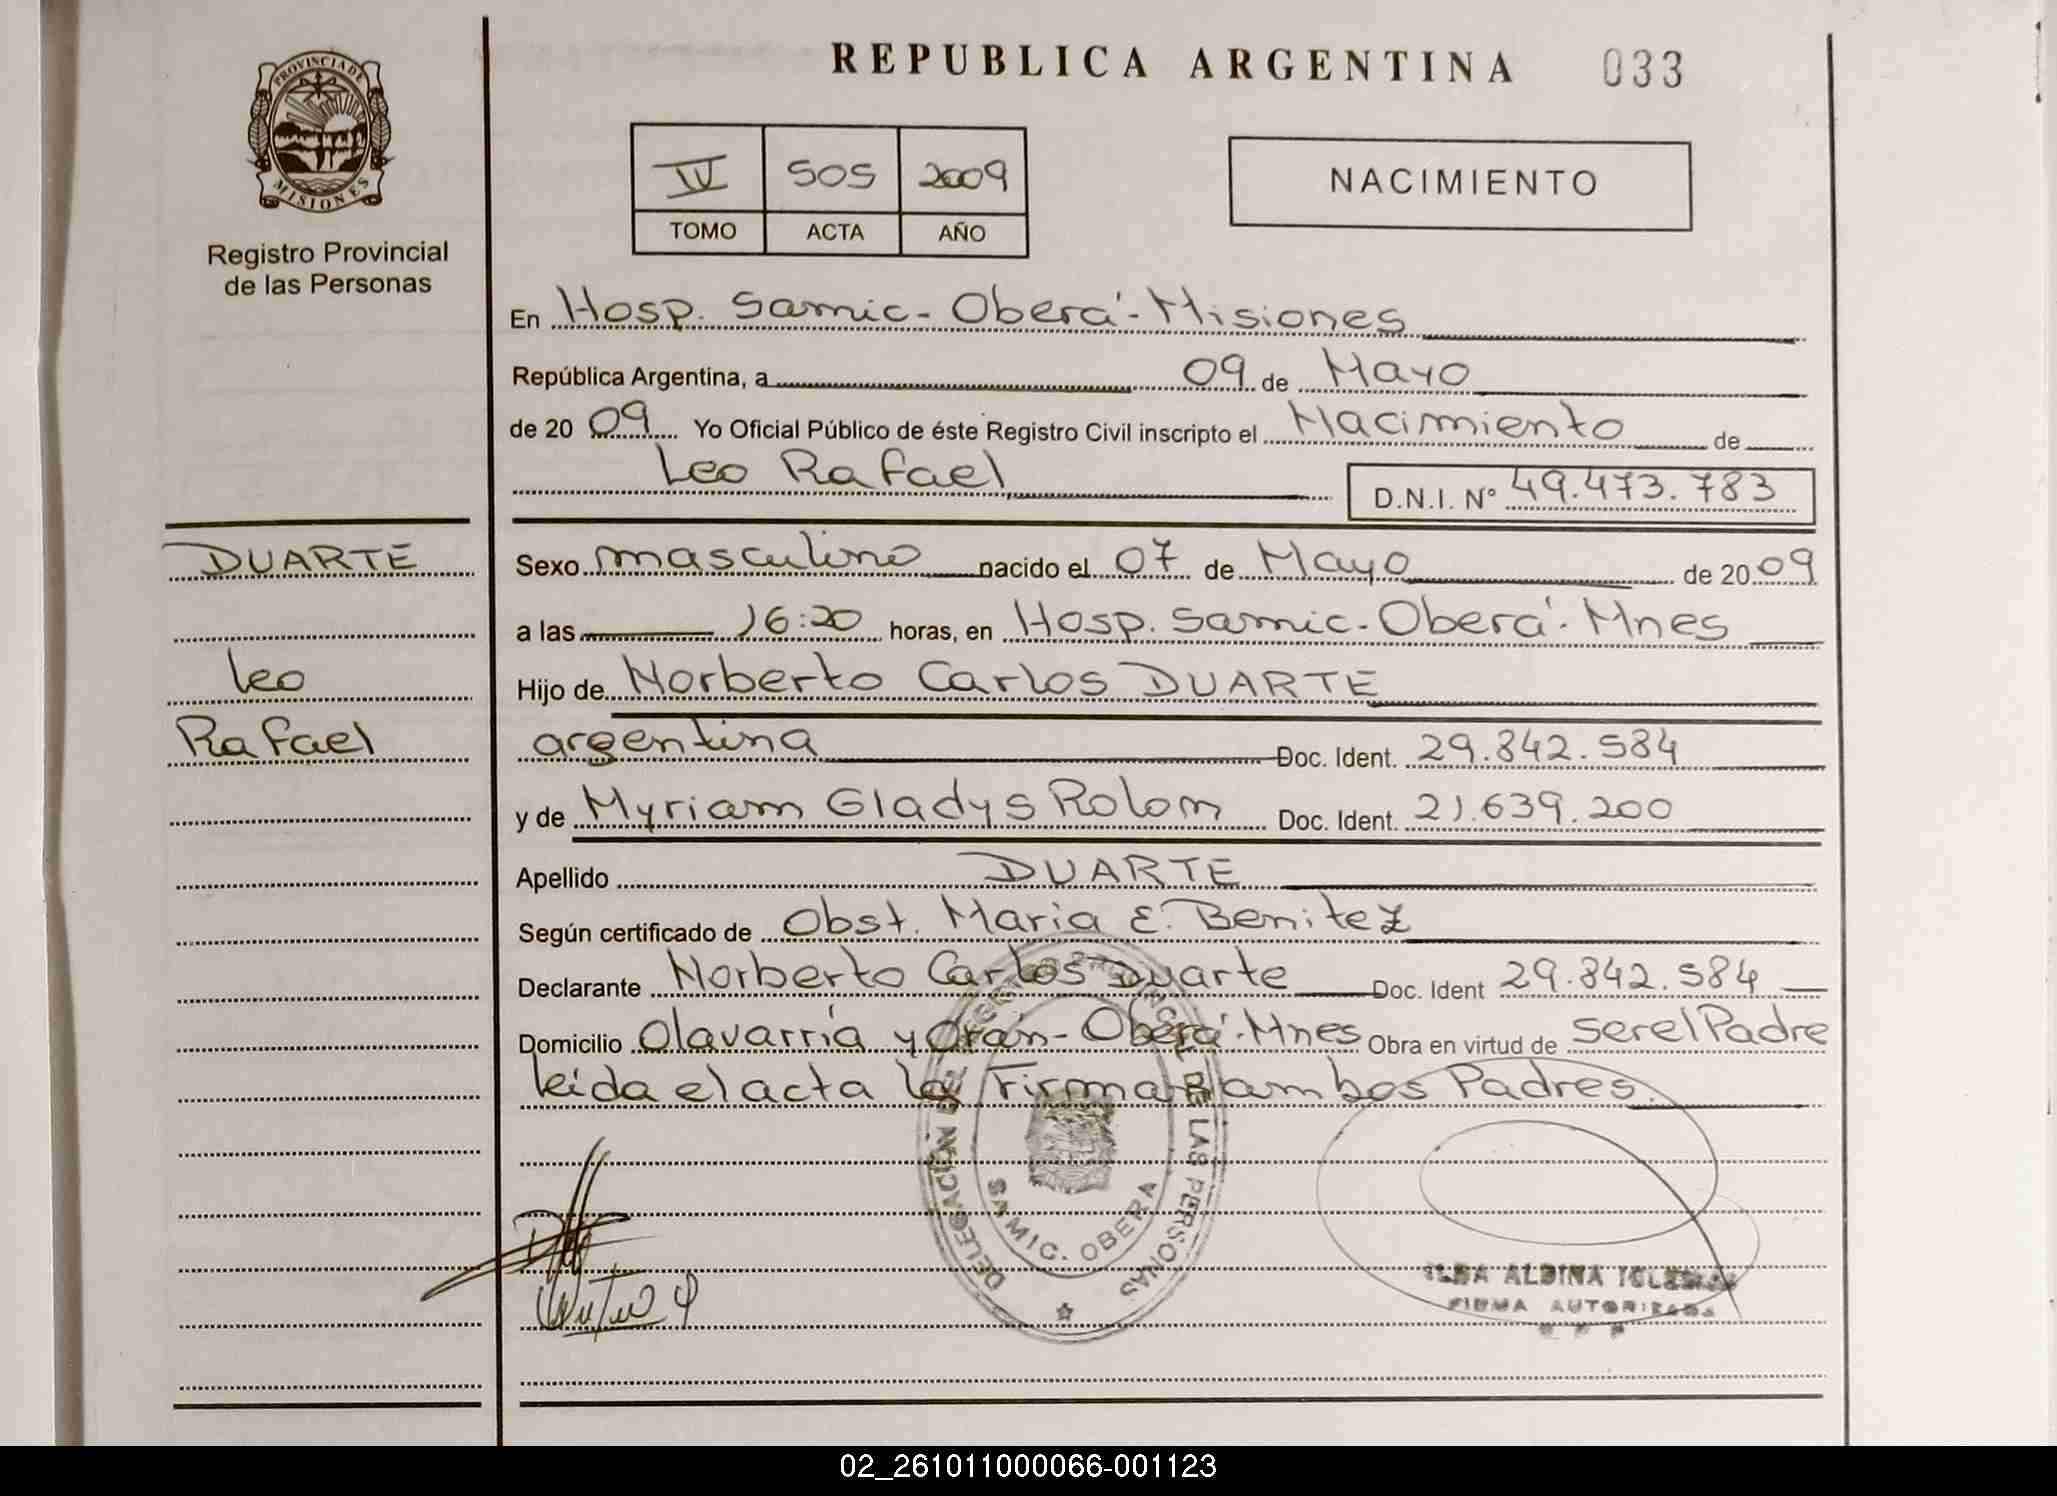 REPUBLICA ARGENTINA 033
PROVINCIA DE
MISIONES
Registro Provincial
de las Personas
IV 505 2009
TOMO ACTA AÑO
NACIMIENTO
En Hosp. Samic - Oberá - Misiones
República Argentina, a 09 de Mayo
de 20 09 Yo Oficial Público de éste Registro Civil inscripto el Nacimiento de
Leo Rafael D.N.I. N° 49.473.783
DUARTE
Leo
Rafael
Sexo masculino nacido el 07 de Mayo de 20 09
a las 16:20 horas, en Hosp. Samic - Oberá - Mnes
Hijo de Norberto Carlos DUARTE
argentina Doc. Ident. 29.842.584
y de Myriam Gladys Rolon Doc. Ident. 21.639.200
Apellido DUARTE
Según certificado de Obst. Maria E. Benitez
Declarante Norberto Carlos Duarte Doc. Ident 29.842.584
Domicilio Olavarría y Orán - Oberá - Mnes Obra en virtud de ser el Padre
leída el acta la Firman ambos Padres.
DELEGACIÓN DEL REGISTRO PROVINCIAL DE LAS PERSONAS
SAMIC. OBERA
ALDINA
FIRMA AUTORIZADA
02_261011000066-001123